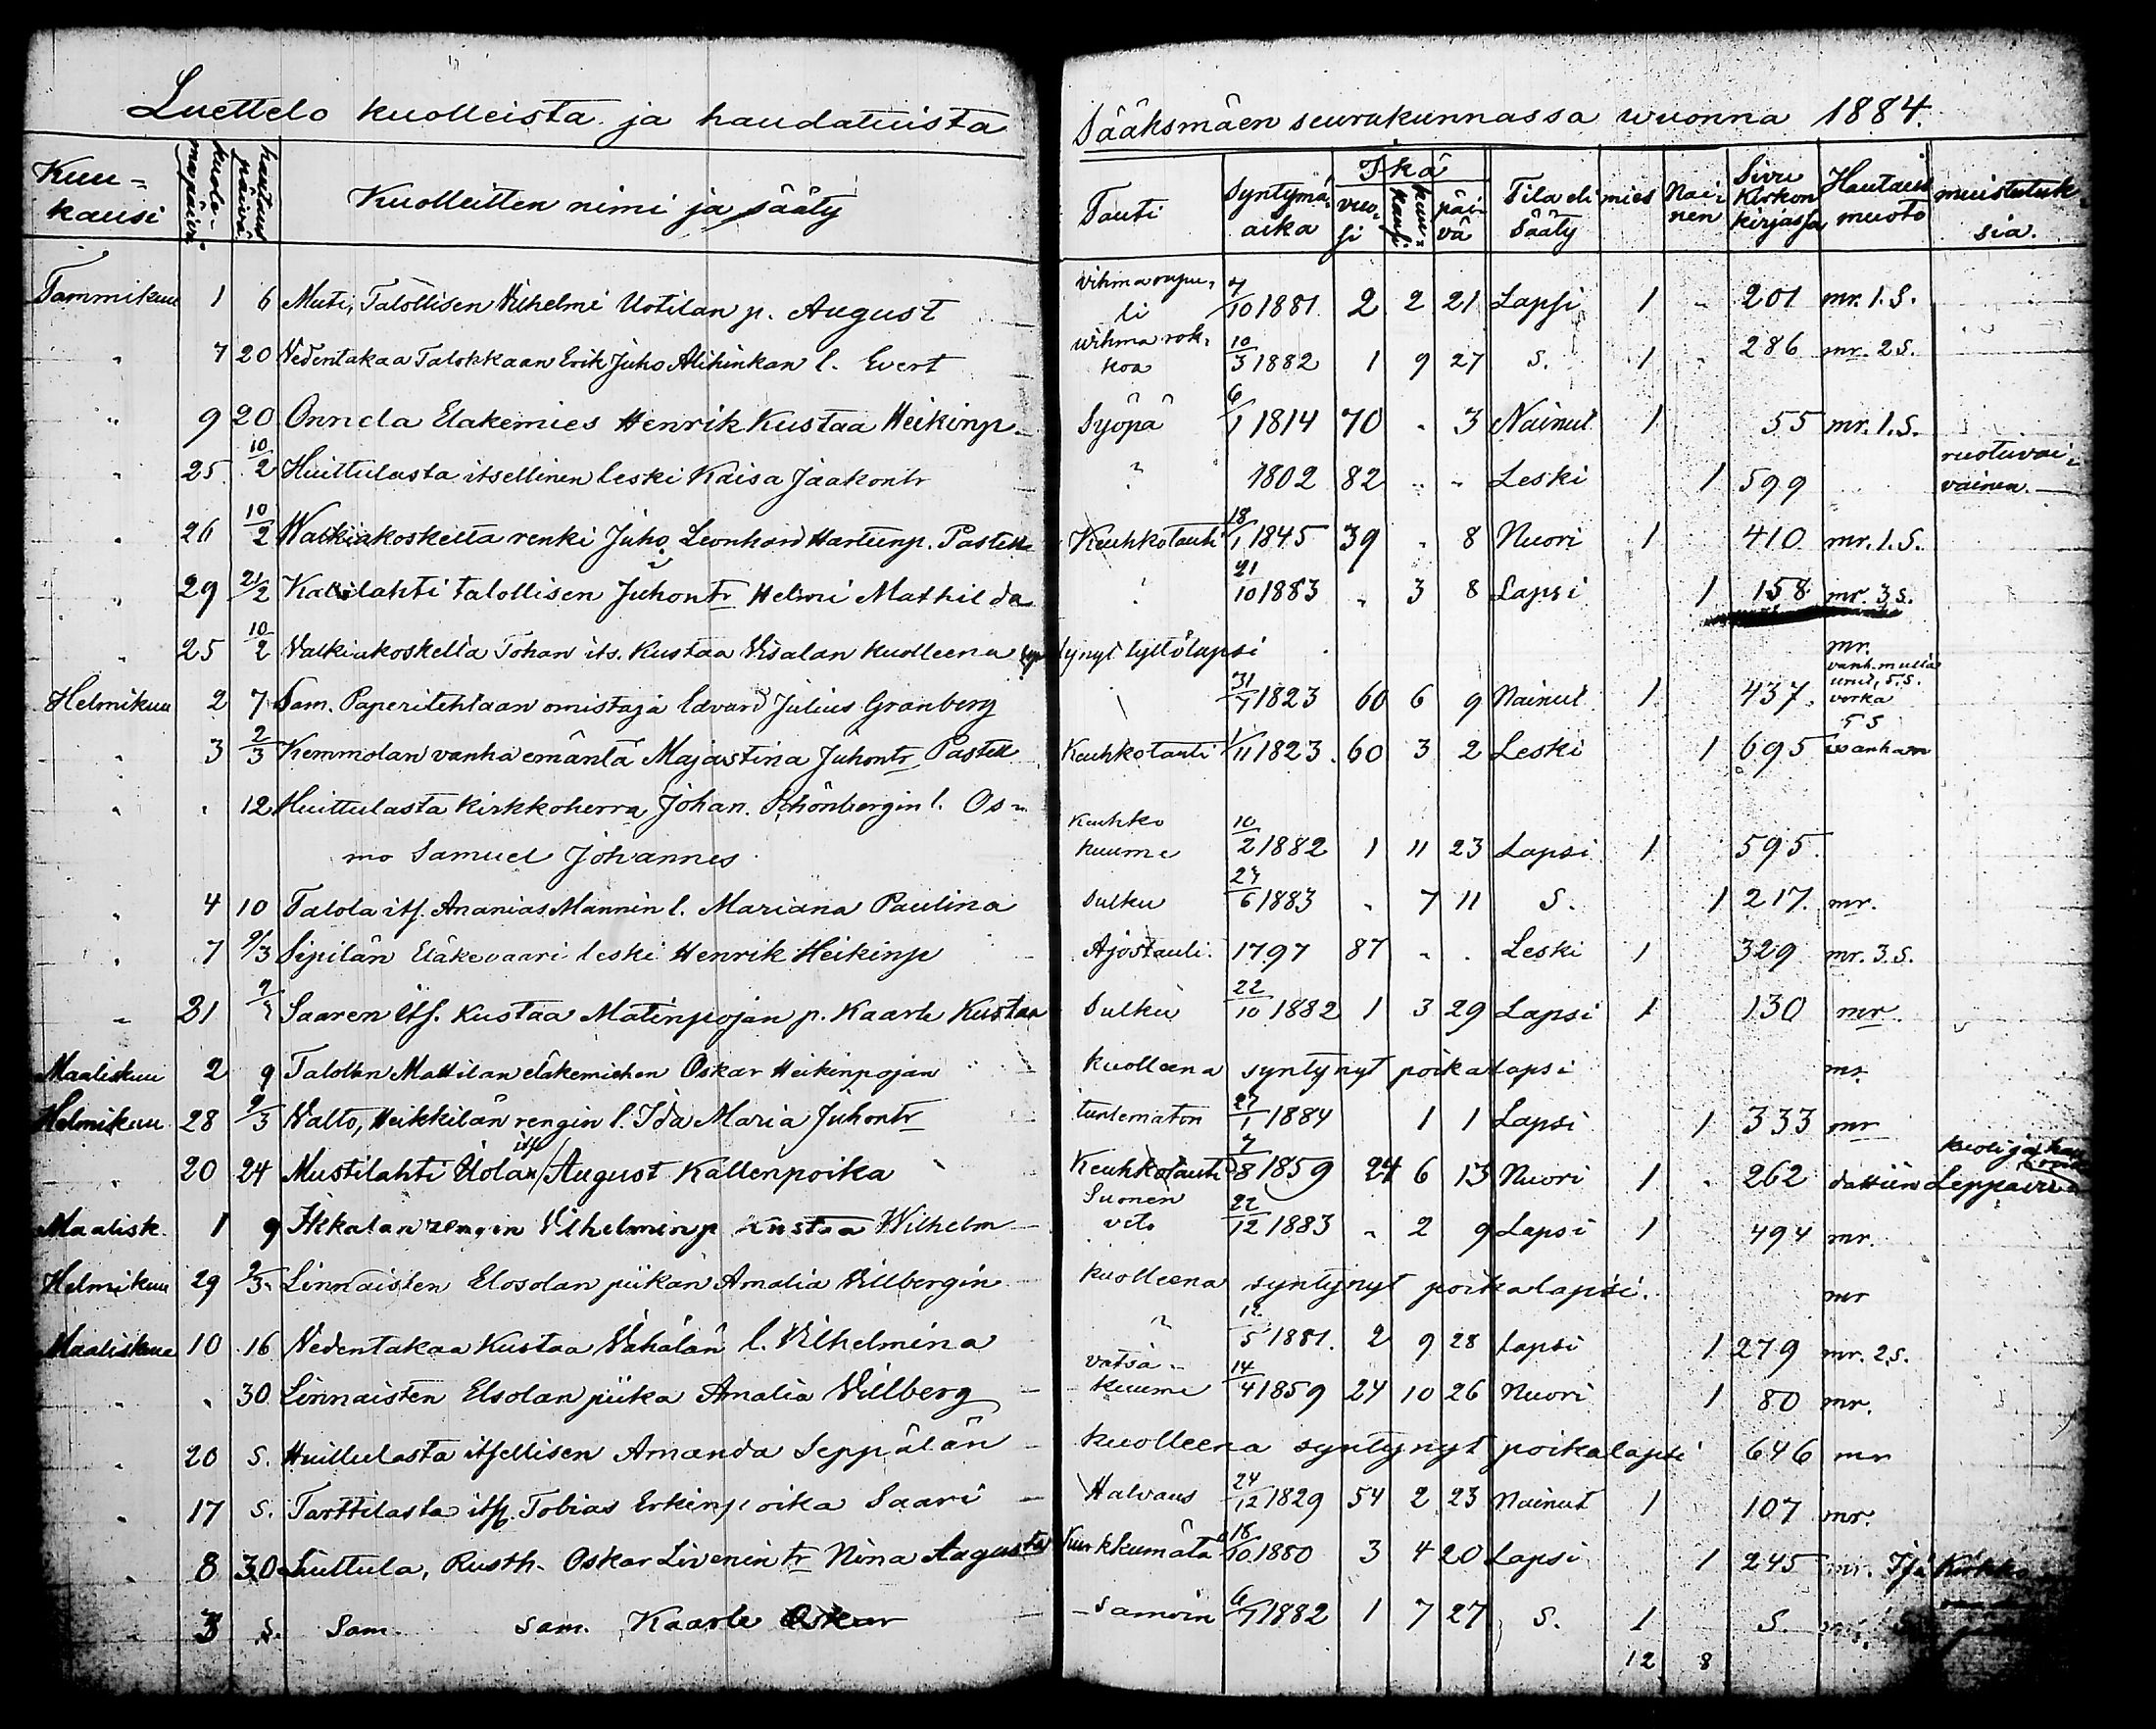 Luettelo kuolleista ja haudatuista Sääksmäen seurakunnassa wuonna 1884.
Kuu-kausi kuole-mapäivä hautaus päivä Kuolleitten nimi ja sääty Tauti Syntymä aika Ikä vuo-si kuu-kausi päi-vä Tila eli Sääty mies Nai-nen Sivu Kirkon kirjassa Hautaus muoto muistutuk-sia.
Tammikuu 1 6 Muti, Talollisen Vilhelmi Uotilan p. August 7/10 1881 2 2 21 Lapsi 1 201 mr. 1. S.
" 7 20 Vedentakaa Talokkaan Erik Juho Alihinkan l. Evert wihma rok-koa 10/3 1882 1 9 27 S. 1 286 mr. 2 S.
" 9 20 Onnela Elakemies Henrik Kustaa Heikinp. Syöpä 6/1 1814 70 " 3 Nainut 1 55 mr. 1. S.
" 25 10/2 Huittulasta itsellinen leski Kaisa Jaakontr ? 1802 82 " " Leski 1 599 ruotuvai-vainen.
" 26 10/2 Walkiakoskelta renki Juho Leonhard Hartunp. Pastell Keuhkotauti 18/1 1845 39 " 8 Nuori 1 410 mr. 1. S.
" 29 21/2 talollisen Juhontr Helmi Mathilda 21/10 1883 " 3 8 Lapsi 1 158 mr. 3 S.
" 25 10/2 Valkiakoskella Johan its. Kustaa Visalan kuolleena syntynyt tyttölapsi mr.
Helmikuu 2 7 Sam. Paperitehtaan omistaja Edvard Julius Granberg 31/7 1823 60 6 9 Nainut 1 437
" 3 2/3 Kemmolan vanha emäntä Majastina Juhontr Pastell Keuhkotauti 1/11 1823 60 3 2 Leski 1 695 wanhan
" " 12 Huittulasta kirkkoherra Johan. Schönbergin l. Os-
mo Samuel Johannes Keuhko kuume 10/2 1882 1 11 23 Lapsi 1 595
" 4 10 Talola its. Ananias Mannin l. Mariana Paulina Sulku 23/6 1883 " 7 11 S. 1 217. mr.
" 7 9/3 Sipilän Eläkevaari leski Henrik Heikinp Ajostauti. 1797 87 " " Leski 1 329 mr. 3. S.
" 21 Saaren its. Kustaa Matinpojan p. Kaarle Kustaa Sulku 22/10 1882 1 3 29 Lapsi 1 130 mr.
Maaliskuu 2 9 Mattilan eläkemiehen Oskar Heikinpojan kuolleena syntynyt poikalapsi mr.
Helmikuu 28 9/3 Valto, Heikkilän rengin l. Ida Maria Juhontr tuntematon 27/1 1884 1 1 Lapsi 1 333 mr
" 20 24 Mustilahti Uolan its August Kallenpoika Keuhkotauti 7/8 1859 24 6 13 Nuori 1 " 262
Maalisk. 1 9 Vilhelminp Kustaa Wilhelm Suonen veto 22/12 1883 " 2 9 Lapsi 1 494 mr.
Helmikuu 29 9/3 Linnaisten Elosolan piikan Amalia Villbergin kuolleena syntynyt poikalapsi. mr
Maaliskuu 10 16 Vedentakaa Kustaa Vähälän l. Vilhelmina ? 12/5 1881. 2 9 28 Lapsi 1 279 mr. 2 S.
" " 30 Linnaisten Elsolan piika Amalia Villberg vatsa-kuume 14/4 1859 24 10 26 Nuori 1 80 mr.
" 20 S. Huittulasta itsellisen Amanda Seppälän kuolleena syntynyt poikalapsi 646 mr
" 17 S. Tarttilasta its. Tobias Erkinpoika Saari Halvaus 24/12 1829 54 2 23 Nainut 1 107 mr.
" 8 30 Liuttula, Rusth. Oskar Livenin tr Nina Augusta Kurkkumätä 18/10 1880 3 4 20 Lapsi 1 245 mr.
" 3 S. Sam. sam. Kaarle Oskar samoin 6/7 1882 1 7 27 S. 1 S.
12 8